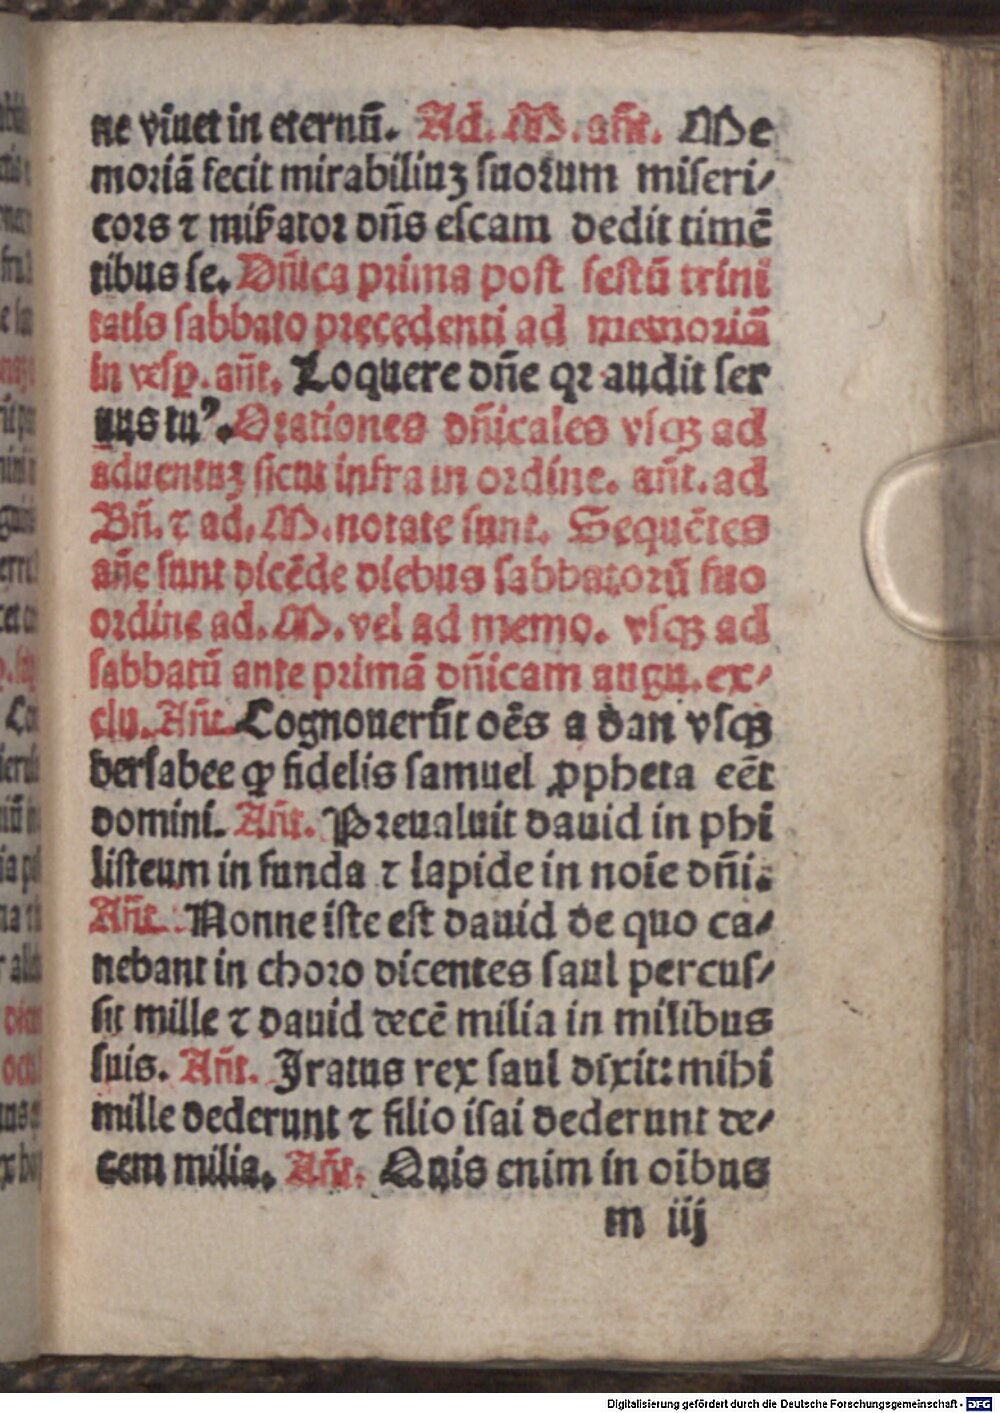 ne viuet in eternū. Ad. M. añt. Me
moriā fecit mirabiliuꝫ suoꝛum miseri⸗
coꝛs ⁊ mis̄atoꝛ dñs escam dedit timē
tibus se. Dñica prima post festū trini
tatis sabbato precedenti ad memoꝛiā
in vesꝑ. añt. Loquere dñe qꝛ audit ser
uus tuꝰ. Oꝛationes dñicales vsqꝫ ad
aduentuꝫ sicut infra in oꝛdine. añt. ad
Bñ. ⁊ ad. M. notate sunt. Sequētes
añe sunt dicēde diebus sabbatoꝛū suo
oꝛdine ad. M. vel ad memo. vsqꝫ ad
sabbatū ante primā dñicam augu. ex⸗
clu. Añt. Cognouerūt oēs a dan vsqꝫ
bersabee ꝙ fidelis samuel ꝓpheta eēt
domini. Añt. Pꝛeualuit dauid in phi
listeum in funda ⁊ lapide in noīe dñi.
Añt. Nonne iste est dauid de quo ca⸗
nebant in choꝛo dicentes saul percus⸗
sit mille ⁊ dauid decē milia in milibus
suis. Añt. Iratus rex saul dixit: mihi
mille dederunt ⁊ filio isai dederunt de⸗
cem milia. Añt. Quis enim in oībus
m iij
ꝯ
Digitalisierung gefördert durch die Deutsche Forschungsgemeinschaft - DFG